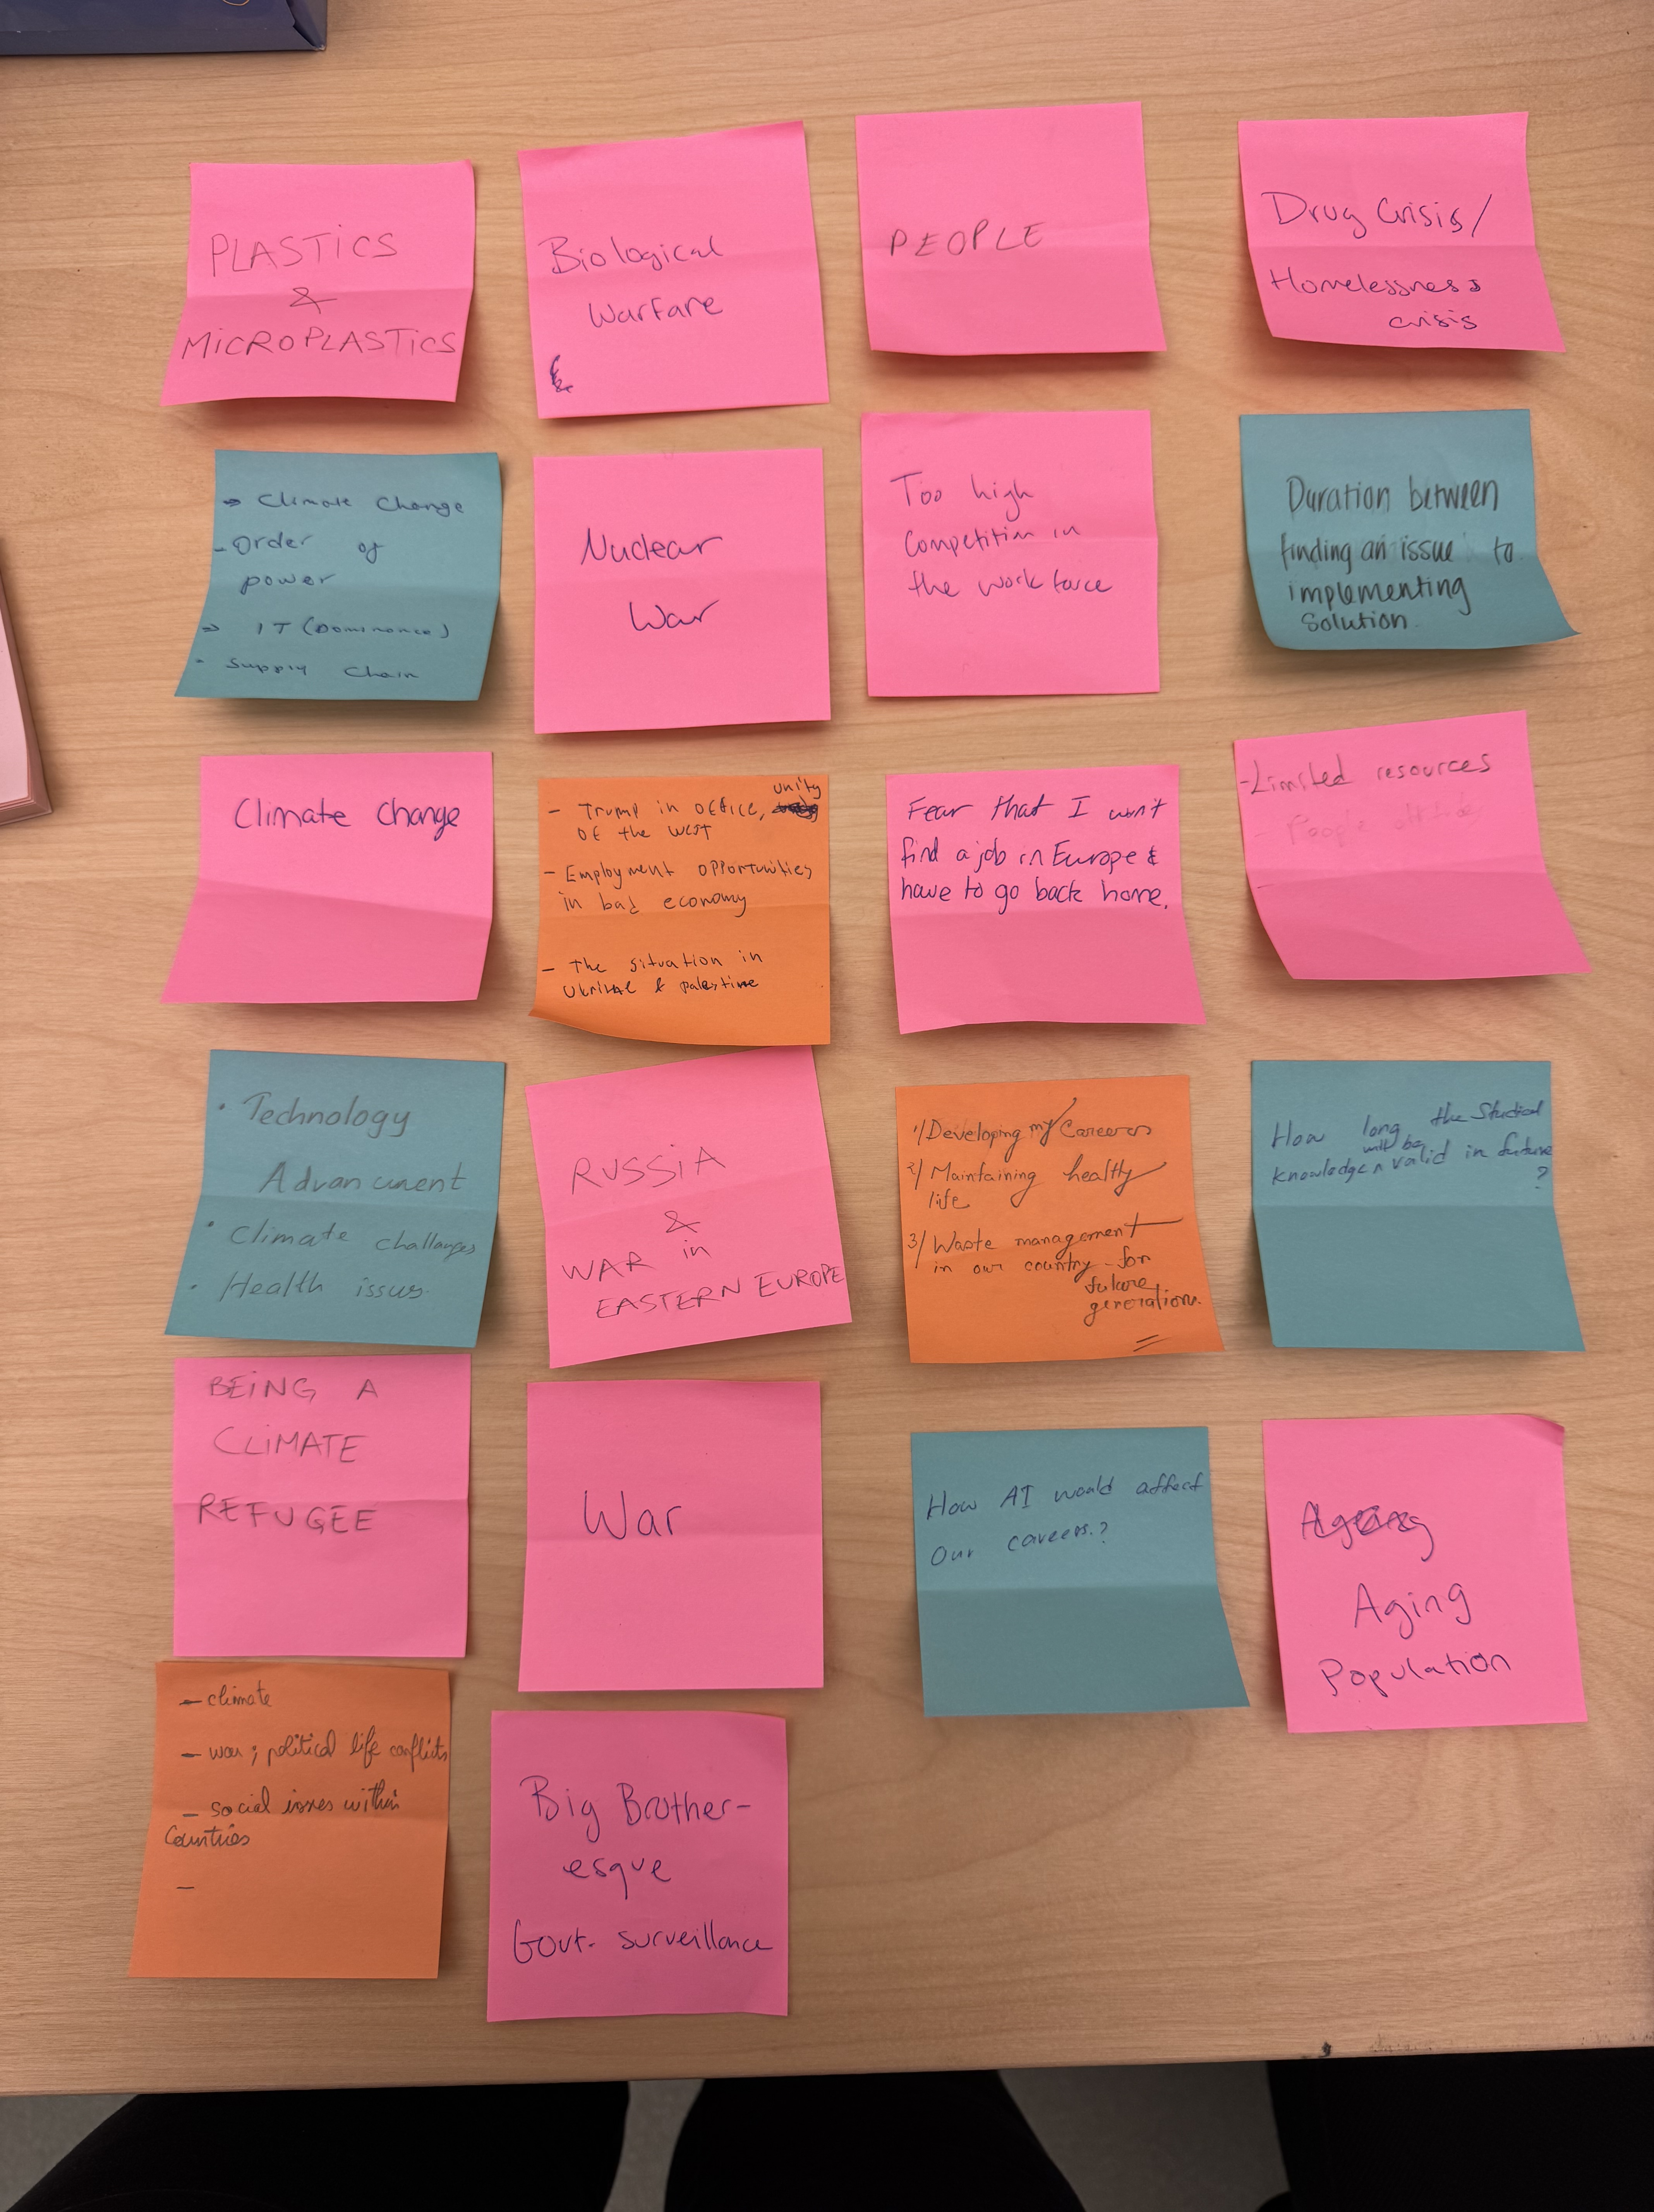 PLASTICS
&
MICROPLASTICS
Biological
Warfare
PEOPLE
Drug Crisis/
Homelessness
crisis
→ Climate Change
- Order of
power
→ IT (Dominance)
- Supply Chain
Nuclear
War
Too high
Competition in
the workforce
Duration between
finding an issue to
implementing
Solution.
Climate Change
- Trump in office, unity
of the west
- Employment opportunities
in bad economy
- The situation in
Ukraine & palestine
Fear that I won't
find a job in Europe &
have to go back home.
- Limited resources
- People
• Technology
Advancement
• Climate challanges
• Health issues
RUSSIA
&
WAR in
EASTERN EUROPE
1/ Developing my Careers
2/ Maintaining healthy
life
3/ Waste management
in our country for
future
generation.
How long the Studied
knowledge will be valid in future
?
BEING A
CLIMATE
REFUGEE
War
How AI would affect
Our careers.?
Aging
Population
- climate
- war ; political life conflicts
- social issues within
Countries
-
Big Brother-
esque
Govt. surveillance